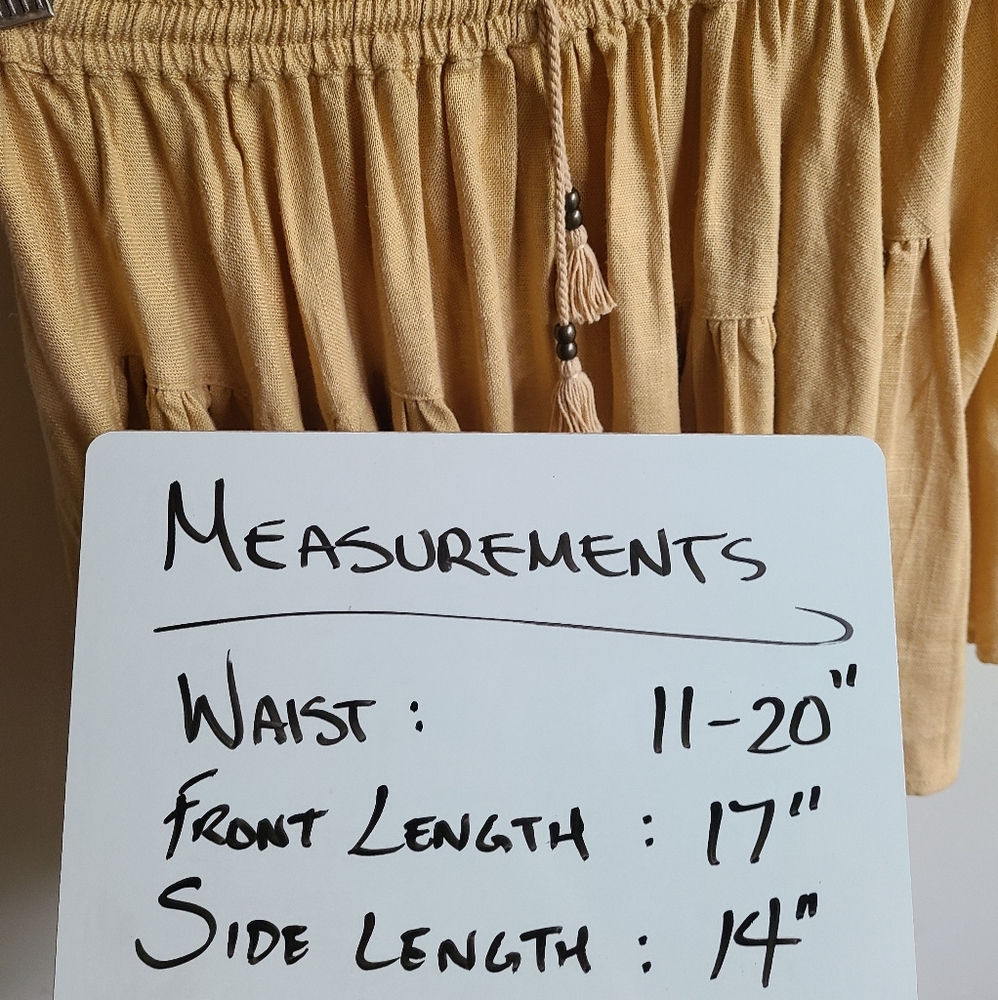 MEASUREMENTS
WAIST : 11-20"
FRONT LENGTH : 17"
SIDE LENGTH : 14"